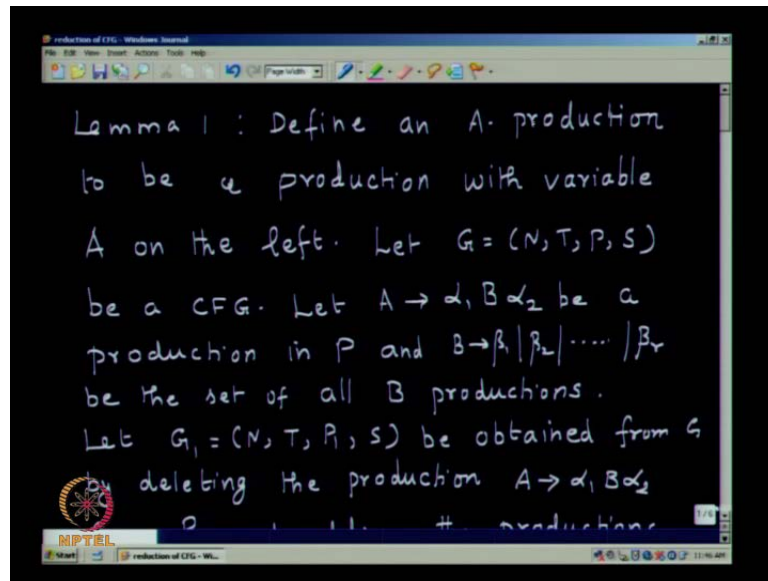 reduction of CFG - Windows Journal
File Edit View Insert Actions Tools Help
Page Width
Lemma 1 : Define an A- production
to be a production with variable
A on the left. Let G = (N, T, P, S)
be a CFG. Let A → α₁ B α₂ be a
production in P and B → β₁ | β₂ | ..... | βᵣ
be the set of all B productions.
Let G₁ = (N, T, P₁, S) be obtained from G
by deleting the production A → α₁ B α₂
P the productions
1/6
NPTEL
Start reduction of CFG - Wi... 11:46 AM